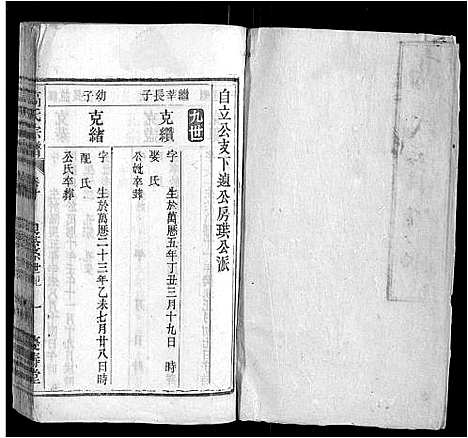 自立公支下適公房珙公派
九世
繼宰長子
克纘
字 生於萬曆五年丁丑三月十九日 時
娶 氏
公姓卒葬
幼子
克緒
字 生於萬曆二十三年乙未七月廿八日時
配 氏
公氏卒葬
高氏宗譜